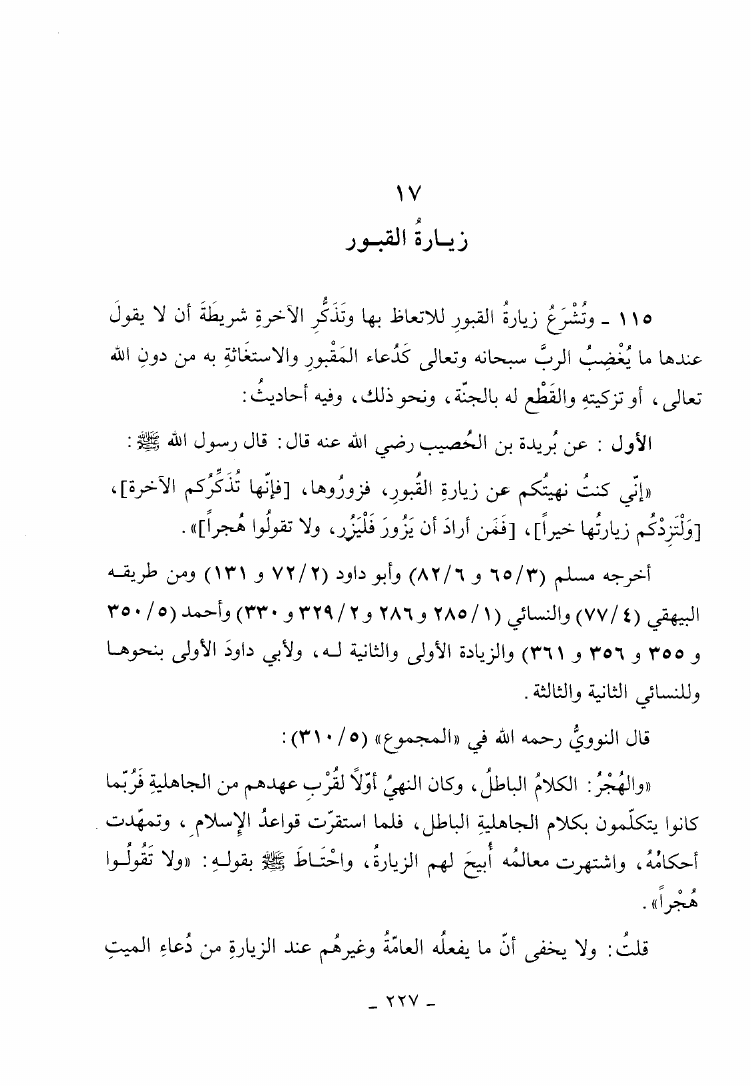 ١٧
زيـارةُ القبـور
١١٥ ـ وتُشْرَعُ زيارةُ القبورِ للاتعاظ بها وتَذَكُّرِ الآخرةِ شريطَةَ أن لا يقولَ
عندها ما يُغْضِبُ الربَّ سبحانه وتعالى كَدُعاء المَقْبورِ والاستغَاثةِ به من دونِ الله
تعالى، أو تزكيتهِ والقَطْعِ له بالجنّة، ونحو ذلك، وفيه أحاديثُ:
الأول : عن بُريدة بن الحُصيب رضي الله عنه قال: قال رسول الله ﷺ:
«إنّي كنتُ نهيتُكم عن زيارةِ القُبورِ، فزورُوها، [فإنّها تُذَكِّرُكم الآخرة]،
[وَلْتَزِدْكُم زيارتُها خيراً]، [فَمَن أرادَ أن يَزُورَ فَلْيَزُر، ولا تقولُوا هُجراً]».
أخرجه مسلم (٦٥/٣ و ٨٢/٦) وأبو داود (٧٢/٢ و ١٣١) ومن طريقـه
البيهقي (٧٧/٤) والنسائي (٢٨٥/١ و ٢٨٦ و ٣٢٩/٢ و ٣٣٠) وأحمد (٣٥٠/٥
و ٣٥٥ و ٣٥٦ و ٣٦١) والزيادة الأولى والثانية لـه، ولأبي داودَ الأولى بنحوهـا
وللنسائي الثانية والثالثة.
قال النوويُّ رحمه الله في «المجموع» (٣١٠/٥):
«والهُجْرُ: الكلامُ الباطلُ، وكان النهيُ أوّلًا لقُرْبِ عهدهم من الجاهليةِ فَرُبّما
كانوا يتكلّمون بكلام الجاهليةِ الباطل، فلما استقرّت قواعدُ الإسلامِ، وتمهّدت
أحكامُهُ، واشتهرت معالمُه أُبيحَ لهم الزيارةُ، واحْتَـاطَ ﷺ بقولـهِ: «ولا تَقُولُـوا
هُجْراً».
قلتُ: ولا يخفى أنّ ما يفعلُه العامّةُ وغيرهُم عند الزيارةِ من دُعاءِ الميتِ
ـ ٢٢٧ ـ